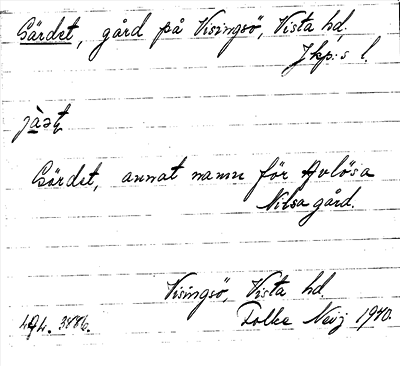 Gärdet, gård på Visingsö, Vista hd,
Jkp:s l.
Gärdet, annat namn för Avlösa
Nilsa gård.
Visingsö, Vista hd
Folke Neij 1940.